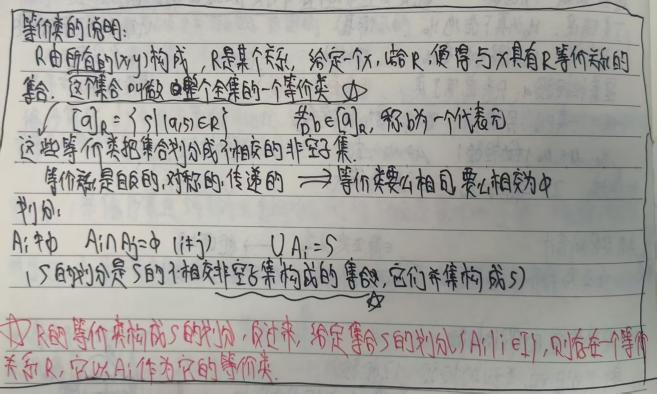 等价类的说明:
R由所有的(x,y)构成,R是某个关系,给定一个x,给R,使得与x具有R等价关系的
集合.这个集合叫做整个全集的一个等价类 ☆
[a]R = {s|(a,s)∈R} 若b∈[a]R,称b为一个代表元
这些等价类把集合划分成不相交的非空子集.
等价关系是自反的,对称的,传递的 ⟹ 等价类要么相同,要么相交为φ
划分:
Ai≠φ Ai∩Aj=φ (i≠j) ∪Ai=S
(S的划分是S的不相交非空子集构成的集合,它们并集构成S)
☆ R的等价类构成S的划分,反过来,给定集合S的划分{Ai|i∈I},则存在一个等价
关系R,它以Ai作为它的等价类.